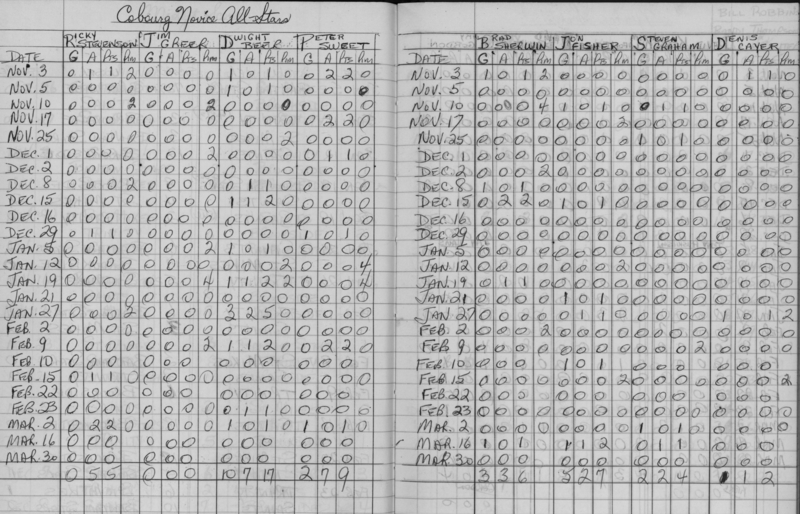 Cobourg Novice All-Stars
RICKY STEVENSON JIM GREER DWIGHT BEER PETER SWEET
G A Pts Pim G A Pts Pim G A Pts Pim G A Pts Pim
DATE
NOV. 3 0 1 1 2 0 0 0 0 1 0 1 0 0 2 2 0
NOV. 5 0 0 0 0 0 0 0 0 1 0 1 0 0 0 0 0
NOV. 10 0 0 0 2 0 0 0 2 0 0 0 0 0 0 0 0
NOV. 17 0 0 0 0 0 0 0 0 0 0 0 0 0 2 2 0
NOV. 25 0 0 0 0 0 0 0 0 0 0 0 2 0 0 0 0
DEC. 1 0 0 0 0 0 0 0 2 0 0 0 0 0 1 1 0
DEC. 2 0 0 0 0 0 0 0 0 0 0 0 0 0 0 0 0
DEC. 8 0 0 0 2 0 0 0 0 0 1 1 0 0 0 0 0
DEC. 15 0 0 0 0 0 0 0 0 1 1 2 0 0 0 0 0
DEC. 16 0 0 0 0 0 0 0 0 0 0 0 0 0 0 0 0
DEC. 29 0 1 1 0 0 0 0 0 0 0 0 0 1 0 1 0
JAN. 5 0 0 0 0 0 0 0 2 1 0 1 0 0 0 0 0
JAN. 12 0 0 0 0 0 0 0 0 0 0 0 2 0 0 0 4
JAN. 19 0 0 0 0 0 0 0 4 1 1 2 2 0 0 0 4
JAN. 21 0 0 0 0 0 0 0 0 0 0 0 0 0 0 0 0
JAN. 27 0 0 0 2 0 0 0 0 3 2 5 0 0 0 0 0
FEB. 2 0 0 0 0 0 0 0 0 0 0 0 0 0 0 0 0
FEB. 9 0 0 0 0 0 0 0 2 1 1 2 0 0 2 2 0
FEB. 10 0 0 0 0 0 0 0 0 0 0 0 0
FEB. 15 0 1 1 0 0 0 0 0 0 0 0 0 0 0 0 0
FEB. 22 0 0 0 0 0 0 0 0 0 0 0 0
FEB. 23 0 0 0 0 0 0 0 0 0 1 1 0 0 0 0 0
MAR. 2 0 2 2 0 0 0 0 0 1 0 1 0 1 0 1 0
MAR. 16 0 0 0 0 0 0 0 0 0 0 0 0
MAR. 30 0 0 0 0 0 0 0 0 0 0 0 0
0 5 5 0 0 0 10 7 17 2 7 9
BRAD SHERWIN JON FISHER STEVEN GRAHAM DENIS CAYER
DATE G A Pts Pim G A Pts Pim G A Pts Pim G A Pts Pim
NOV. 3 1 0 1 2 0 0 0 0 0 0 0 0 0 1 1 0
NOV. 5 0 0 0 0 0 0 0 0 0 0 0 0 0 0 0 0
NOV. 10 0 0 0 4 1 0 1 0 0 1 1 0 0 0 0 0
NOV. 17 0 0 0 0 0 0 0 2 0 0 0 0 0 0 0 0
NOV. 25 0 0 0 0 0 0 0 0 1 0 1 0 0 0 0 0
DEC. 1 0 0 0 0 0 0 0 0 0 0 0 0 0 0 0 0
DEC. 2 0 0 0 2 0 0 0 0 0 0 0 0 0 0 0 0
DEC. 8 1 0 1 0 0 0 0 0 0 0 0 0 0 0 0 0
DEC. 15 0 2 2 0 1 0 1 0 0 0 0 0 0 0 0 0
DEC. 16 0 0 0 0 0 0 0 0 0 0 0 0 0 0 0 0
DEC. 29 0 0 0 0 0 0 0 0 0 0 0 0 0 0 0 0
JAN. 5 0 0 0 0 0 0 0 0 0 0 0 0 0 0 0 0
JAN. 12 0 0 0 0 0 0 0 2 0 0 0 0 0 0 0 0
JAN. 19 0 1 1 0 0 0 0 0 0 0 0 0 0 0 0 0
JAN. 21 0 0 0 0 1 0 1 0 0 0 0 0 0 0 0 0
JAN. 27 0 0 0 0 0 1 1 0 0 0 0 0 1 0 1 2
FEB. 2 0 0 0 2 0 0 0 0 0 0 0 0 0 0 0 0
FEB. 9 0 0 0 0 0 0 0 0 0 0 0 2 0 0 0 0
FEB. 10 0 0 0 1 0 1 0 0 0 0 0 0
FEB. 15 0 0 0 0 0 0 0 2 0 0 0 0 0 0 0 2
FEB. 22 0 0 0 0 0 0 0 0 0 0 0 0
FEB. 23 0 0 0 0 0 0 0 0 0 0 0 0 0 0 0 0
MAR. 2 0 0 0 0 0 0 0 0 1 0 1 0 0 0 0 0
MAR. 16 1 0 1 1 1 2 0 1 1 0 0 0
MAR. 30 0 0 0 0 0 0 0 0 0 0 0 0
3 3 6 5 2 7 2 2 4 1 2